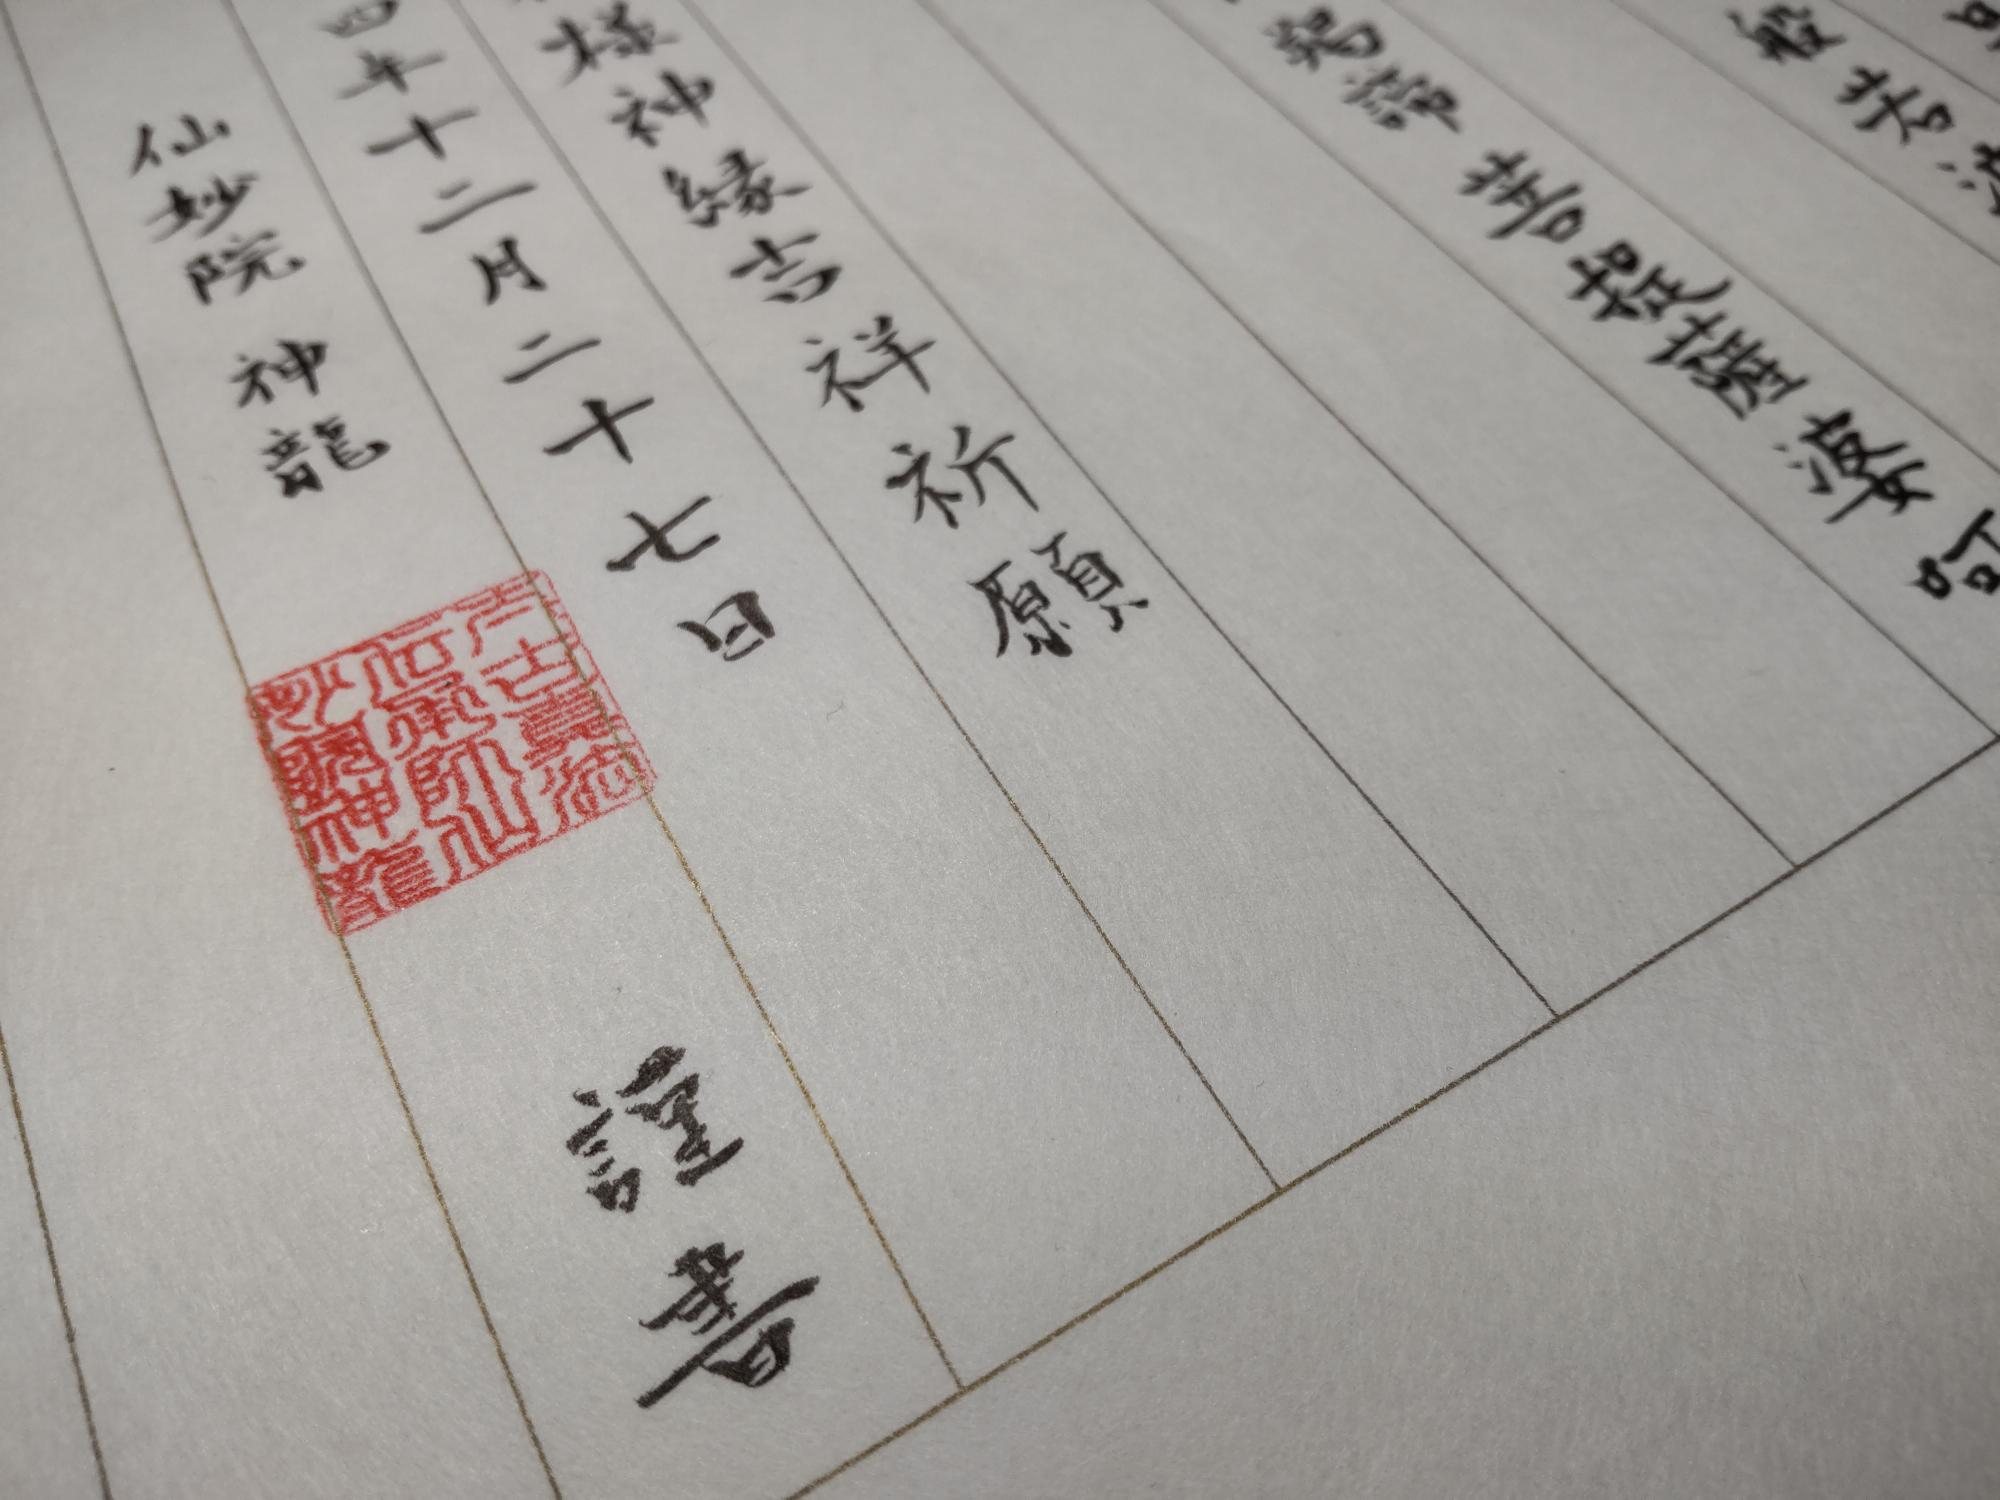 般若波
羯諦 菩提薩婆訶
様神縁吉祥祈願
四年十二月二十七日
謹書
仙妙院 神龍